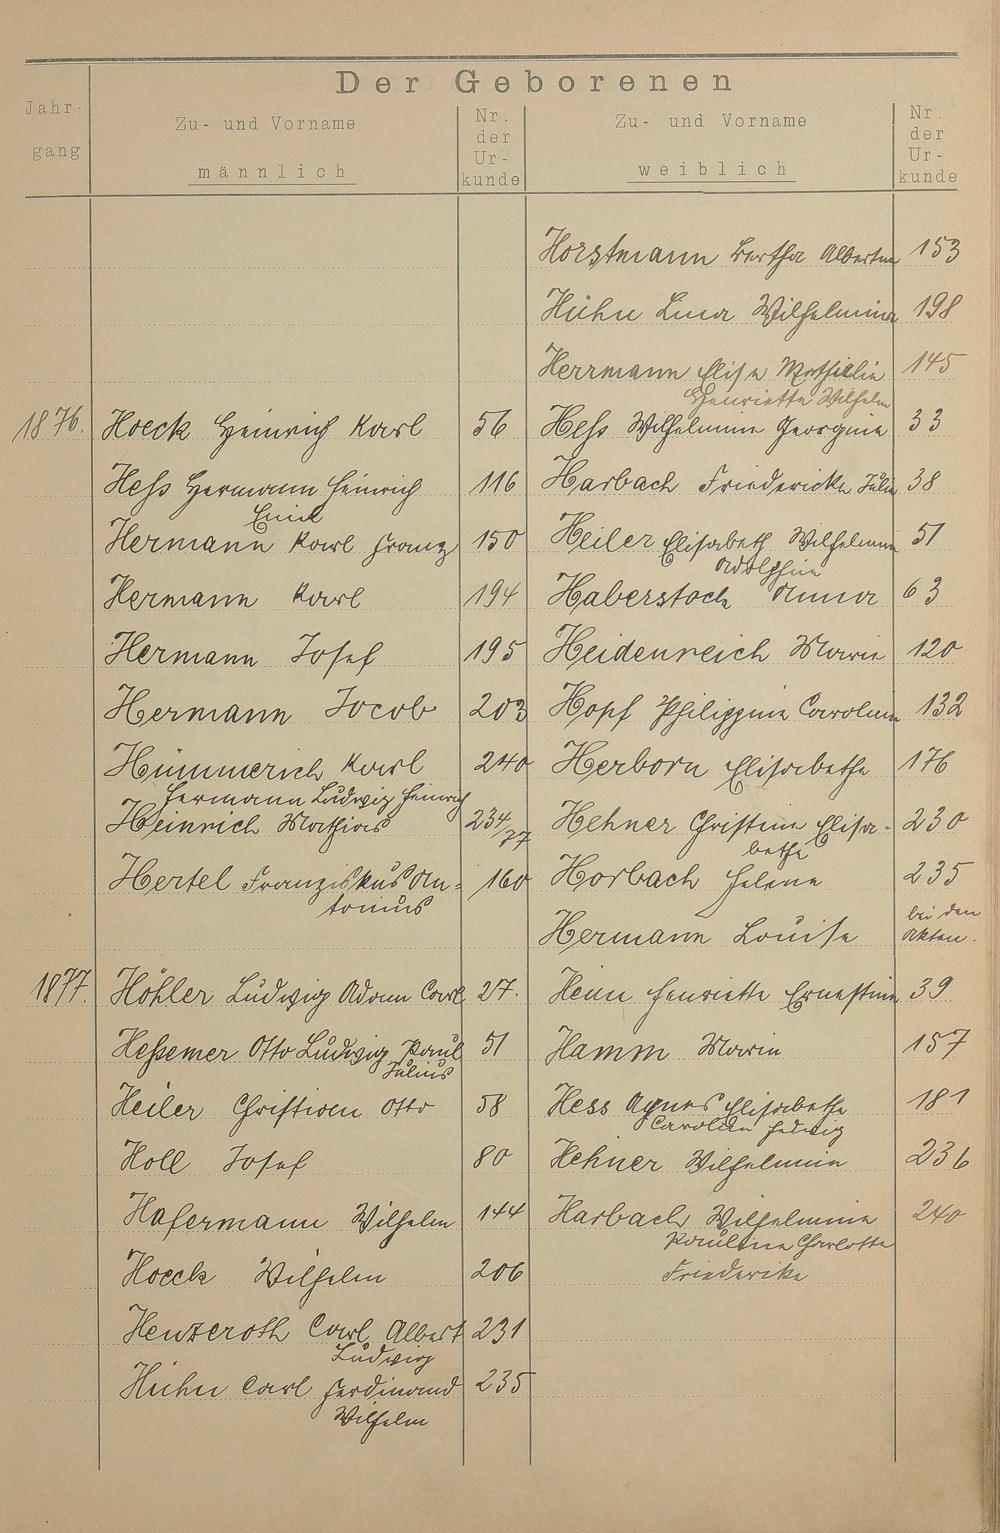 Der Geborenen
Jahr-
gang
Zu- und Vorname
männlich
Nr.
der
Ur-
kunde
Zu- und Vorname
weiblich
Nr.
der
Ur-
kunde
Horstmann Bertha Albertine 153
Huhn Lina Wilhelmina 198
Herrmann Elise Mathilde 145
Henriette Wilhelm
1876. Hoeck Heinrich Karl 56 Heß Wilhelmine Georgine 33
Heß Hermann Heinrich 116 Harbach Friedericke Julie 38
Emil
Hermann Karl Franz 150 Heiler Elisabeth Wilhelmine 51
Adolphine
Hermann Karl 194 Haberstock Anna 63
Hermann Josef 195 Heidenreich Marie 120
Hermann Jacob 203 Hopf Philippine Caroline 132
Hümmerich Karl 240 Herborn Elisabethe 176
Hermann Ludwig Heinrich
Heinrich Mathias 234/77 Hehner Christine Elisa- 230
bethe
Hertel Franziskus An- 160 Horbach Helene 235
tonius
Hermann Louise bei den
Akten.
1877. Höhler Ludwig Adam Carl 27. Henn Henriette Ernestine 39
Heßemer Otto Ludwig Paul 51 Hamm Maria 157
Julius
Heiler Christian Otto 58 Hess Agnes Elisabethe 181
Carolin Hedwig
Holl Josef 80 Hehner Wilhelmine 236
Hafermann Wilhelm 144 Harbach Wilhelmine 240
Pauline Charlotte
Hoeck Wilhelm 206 Friederike
Henzeroth Carl Albert 231
Ludwig
Huhn Carl Ferdinand 235
Wilhelm